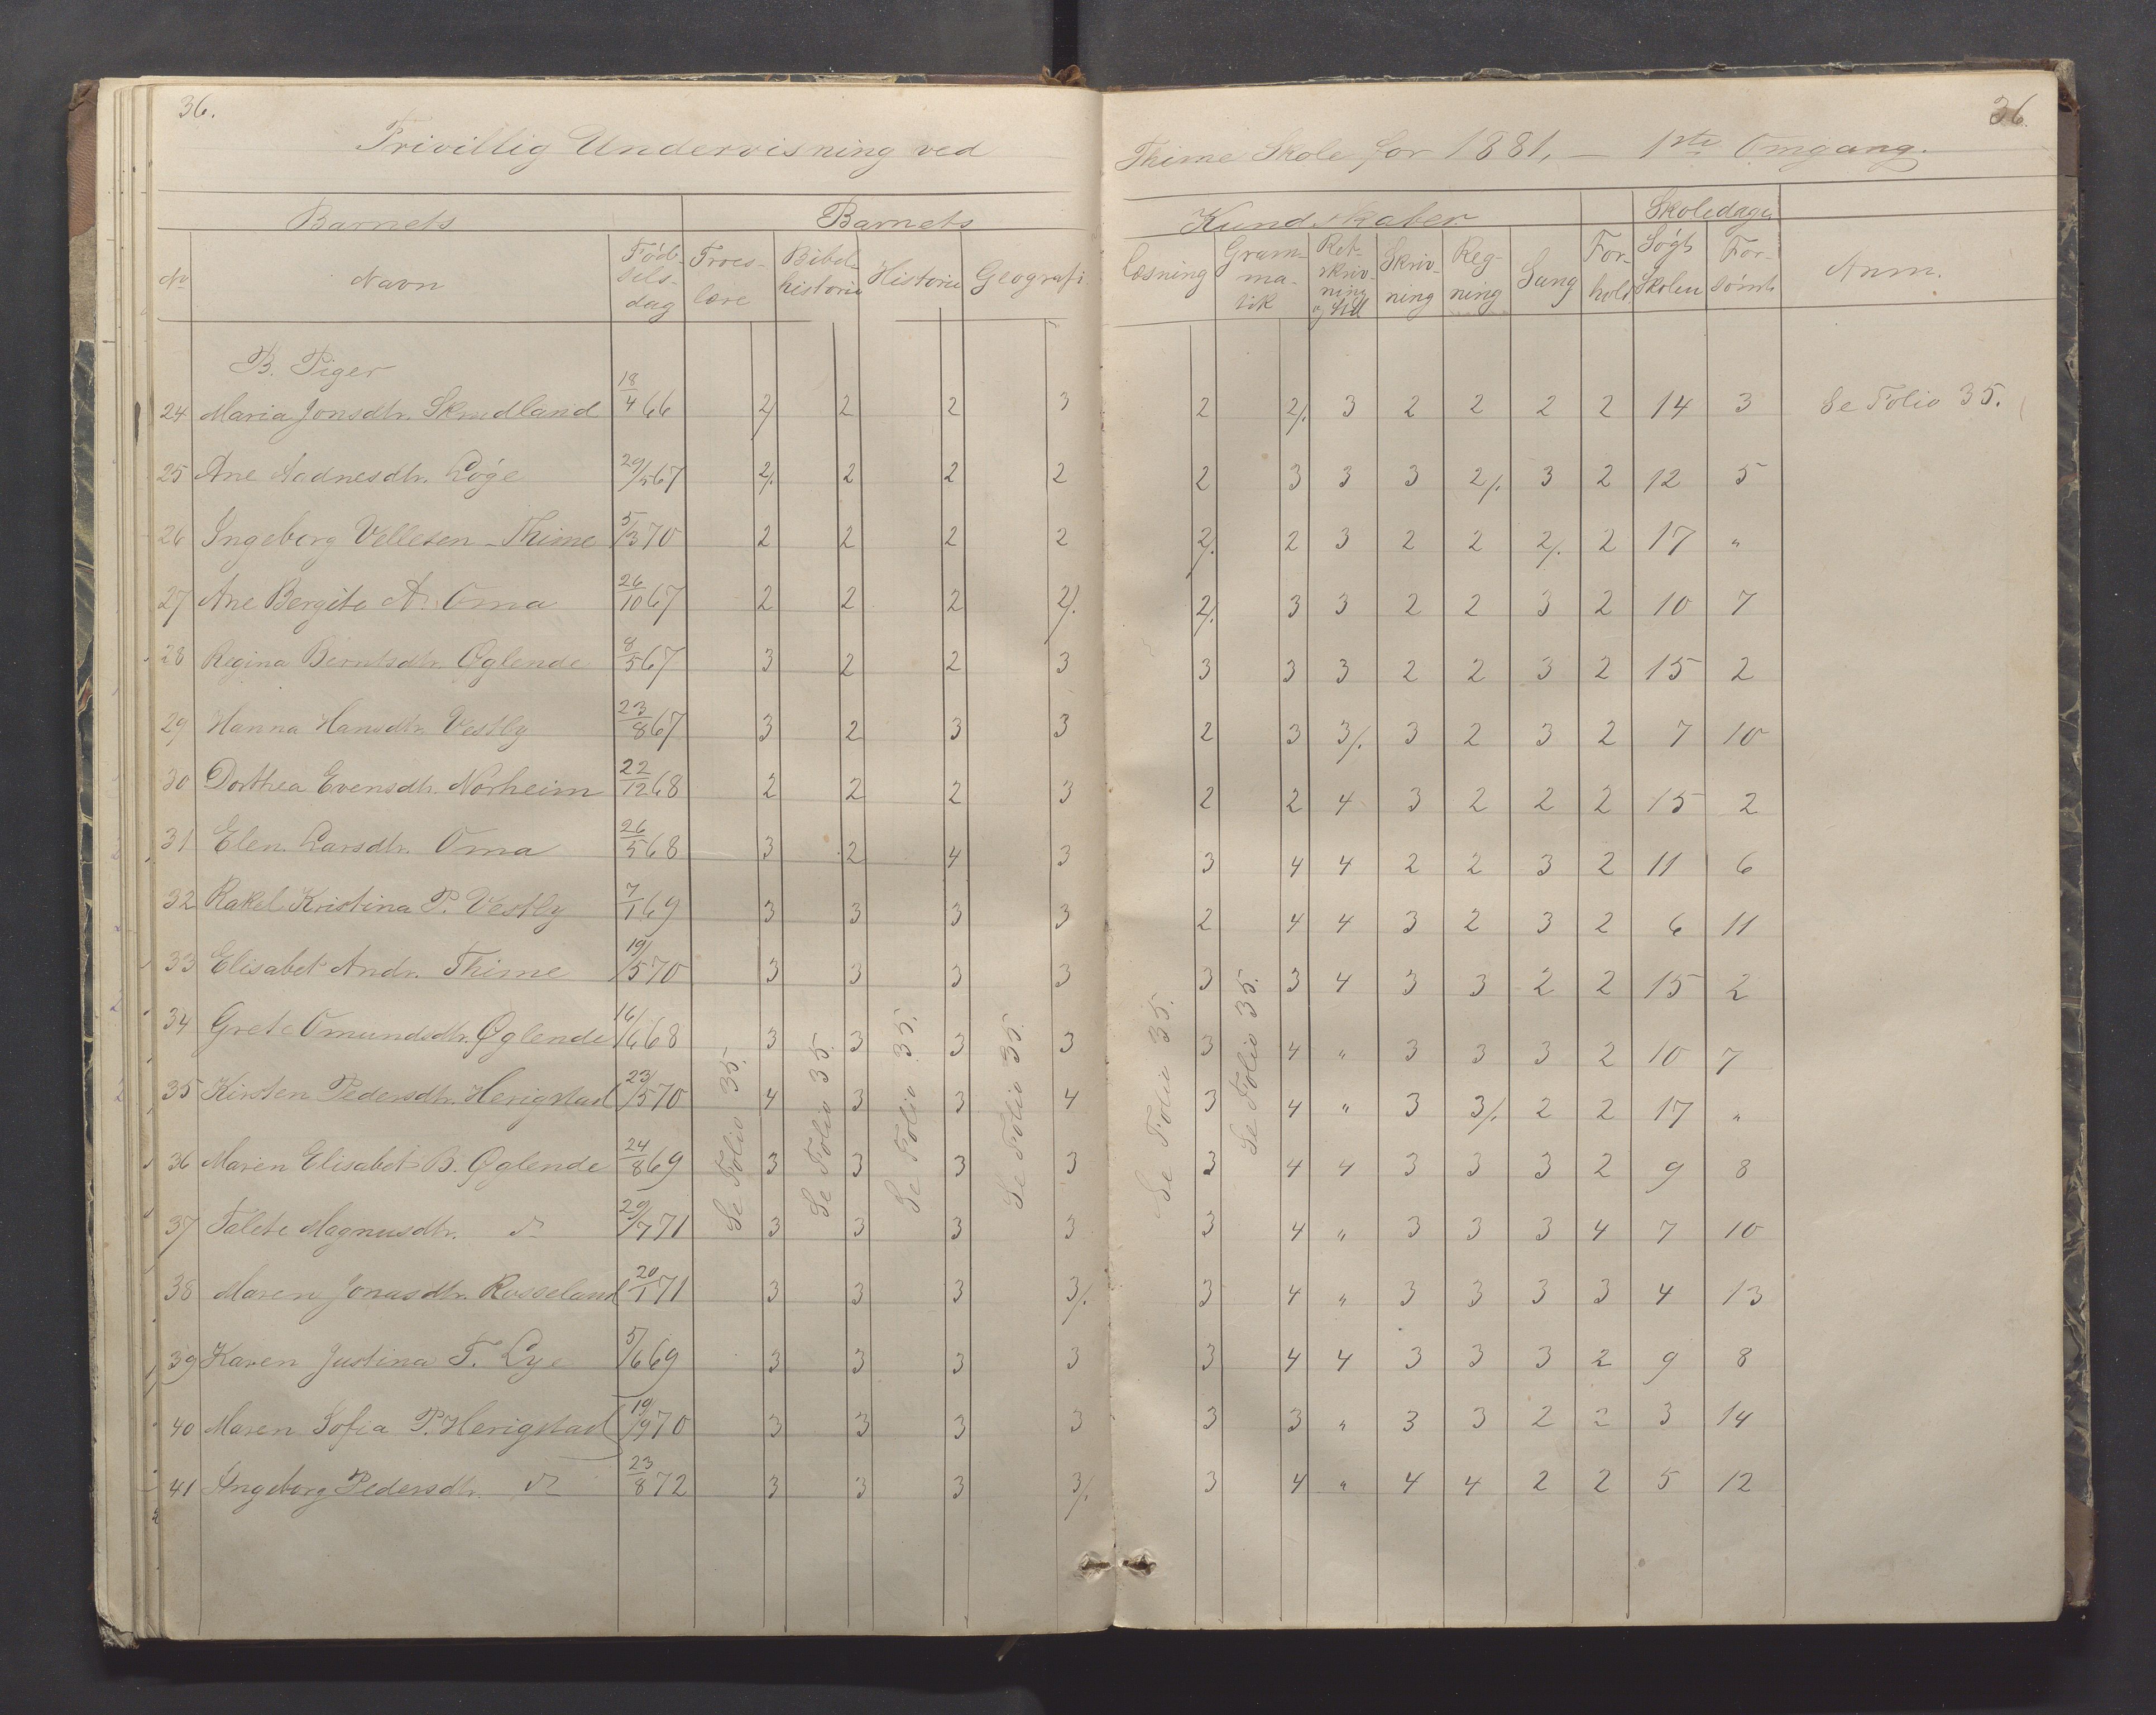 36.
36.
Frivillig Undervisning ved Thime Skole for 1881, — 1ste Omgang.
Barnets Barnets Kundskaber Skoledage
No Navn Fødselsdag Troeslære Bibelhistorie Historie Geografi Læsning Grammatik Retskrivning og Stil Skrivning Regning Sang Forhold Søgt Skolen Forsømt Anm.
B. Piger
24 Maria Jonsdtr. Skrudland 18/4 66 2/ 2 2 3 2 2/. 3 2 2 2 2 14 3 Se Folio 35.
25 Ane Aadnesdtr. Løge 29/5 67 2/. 2 2 2 2 3 3 3 2/. 3 2 12 5
26 Ingeborg Vellesen - Thime 5/3 70 2 2 2 2 2/. 2 3 2 2 2/. 2 17 "
27 Ane Bergite A. Oma 26/10 67 2 2 2 2/. 2/. 3 3 2 2 3 2 10 7
28 Regina Berntsdtr. Øglende 8/5 67 3 2 2 3 3 3 3 2 2 3 2 15 2
29 Hanna Hansdtr. Vestly 23/8 67 3 2 3 3 2 3 3/. 3 2 3 2 7 10
30 Dorthea Evensdtr. Norheim 22/12 68 2 2 2 3 2 2 4 3 2 2 2 15 2
31 Elen Larsdtr. Oma 26/5 68 3 2 4 3 3 4 4 2 2 3 2 11 6
32 Rakel Kristina P. Vestly 7/1 69 3 3 3 3 2 4 4 3 2 3 2 6 11
33 Elisabet Andr. Thime 19/5 70 3 3 3 3 3 3 4 3 3 2 2 15 2
34 Grete Omundsdtr. Øglende 16/6 68 3 3 3 3 3 4 " 3 3 3 2 10 7
35 Kirsten Pedersdtr. Herigstad 23/5 70 4 3 3 4 3 4 " 3 3/. 2 2 17 "
36 Maren Elisabet B. Øglende 24/8 69 3 3 3 3 3 4 4 3 3 3 2 9 8
37 Talete Magnusdtr. do 29/7 71 3 3 3 3 3 4 " 3 3 3 4 7 10
38 Maren Jonasdtr. Rosseland 20/1 71 3 3 3 3/. 3 4 " 3 3 3 3 4 13
39 Karen Justina T. Lye 5/6 69 3 3 3 3 3 4 4 3 3 3 2 9 8
40 Maren Sofia P. Herigstad 19/9 70 3 3 3 3 3 3 " 3 3 2 2 3 14
41 Ingeborg Pedersdtr. do 23/8 72 3 3 3 3/. 3 4 " 4 4 2 2 5 12
Se Folio 35.
Se Folio 35.
Se Folio 35.
Se Folio 35.
Se Folio 35.
Se Folio 35.